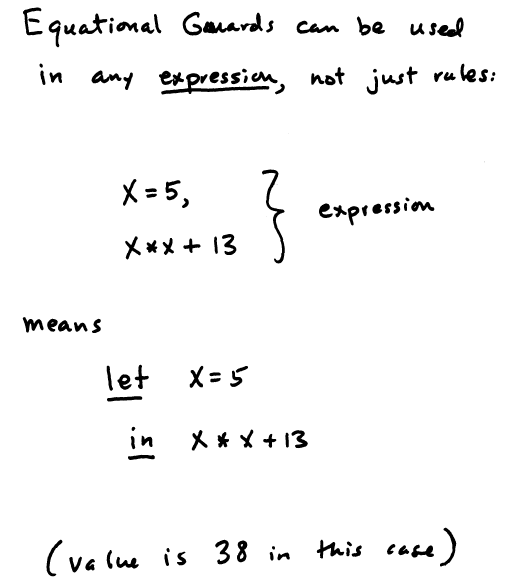 Equational Guards can be used
in any expression, not just rules:
X = 5,
X*X + 13
} expression
means
let X = 5
in X * X + 13
(value is 38 in this case)